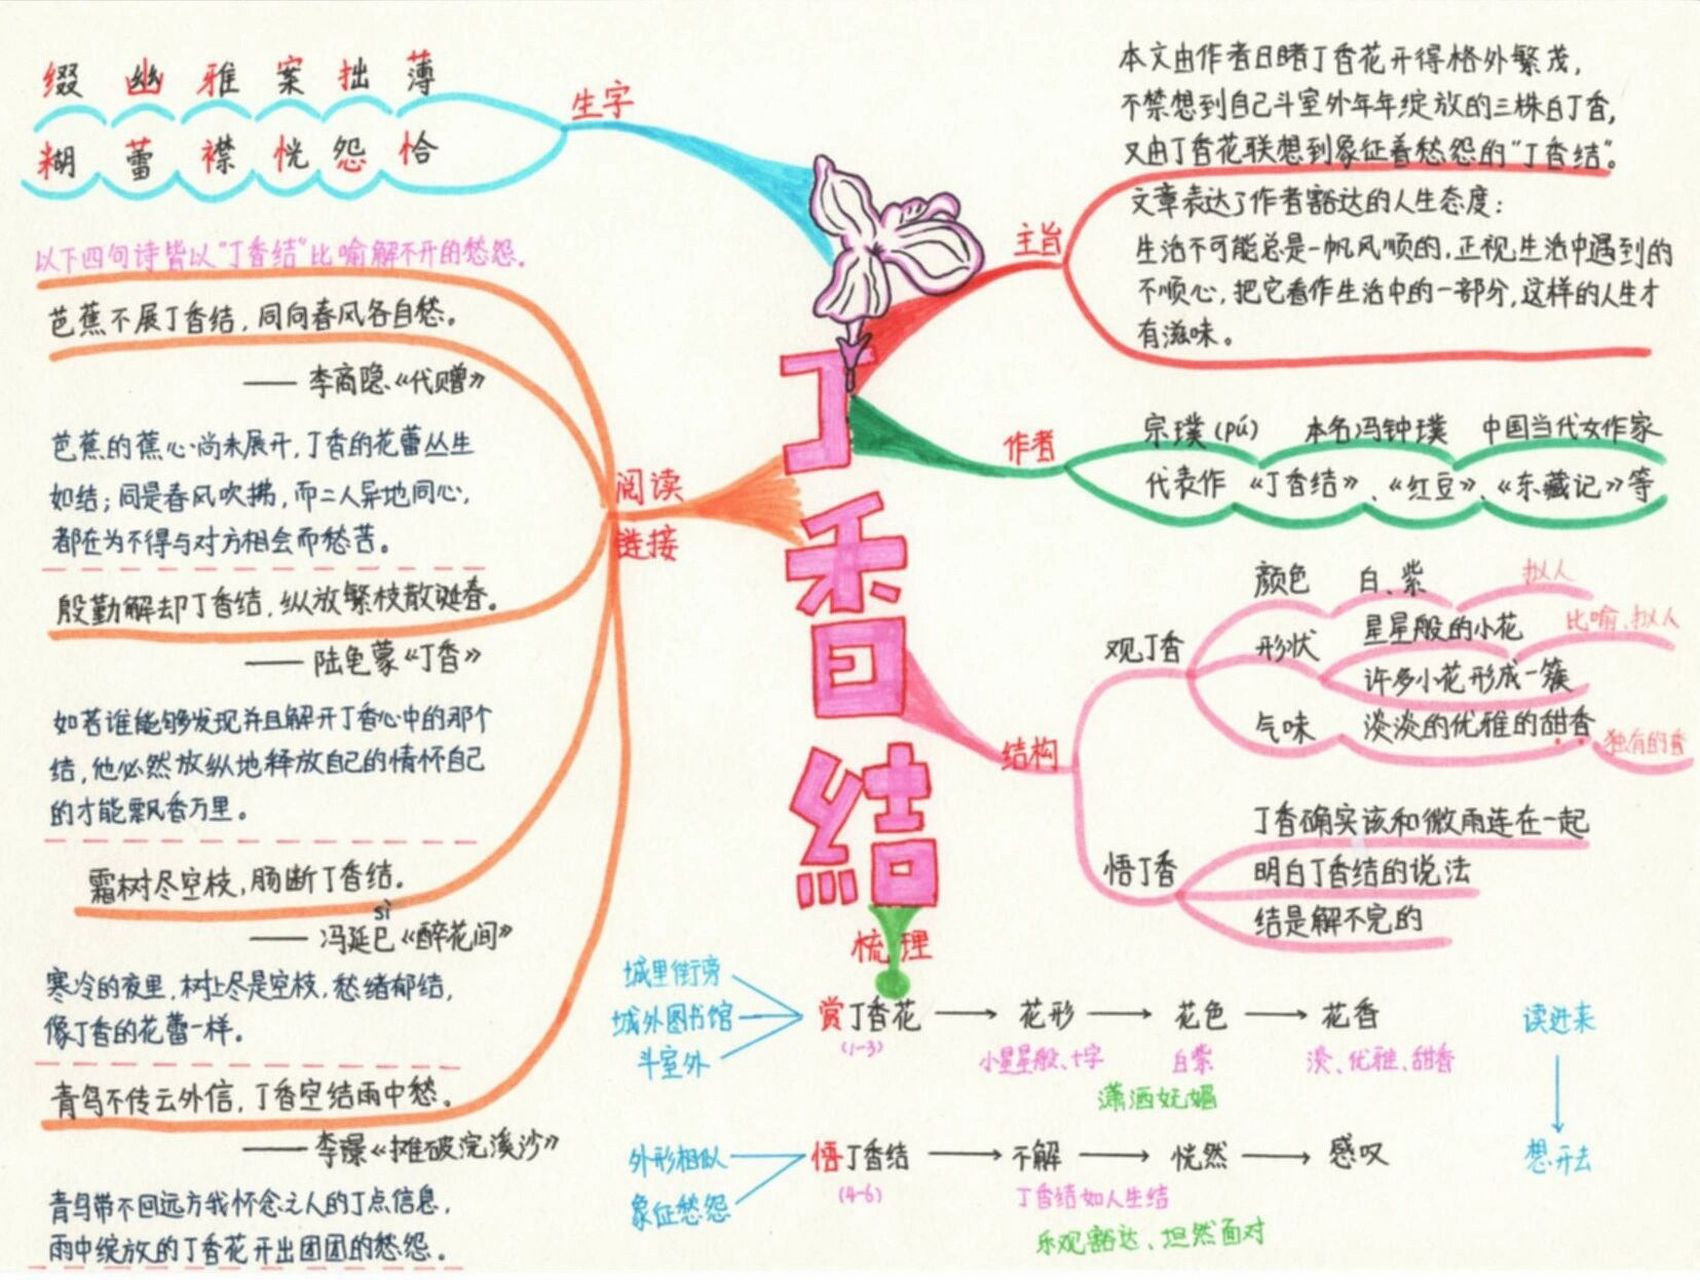 丁香结
生字
缀 幽 雅 案 拙 薄
糊 蕾 襟 恍 怨 恰
主旨
本文由作者目睹丁香花开得格外繁茂,
不禁想到自己斗室外年年绽放的三株白丁香,
又由丁香花联想到象征着愁怨的“丁香结”。
文章表达了作者豁达的人生态度:
生活不可能总是一帆风顺的,正视生活中遇到的
不顺心,把它看作生活中的一部分,这样的人生才
有滋味。
作者
宗璞(pú) 本名冯钟璞 中国当代女作家
代表作 《丁香结》、《红豆》、《东藏记》等
结构
观丁香
颜色 白、紫 拟人
形状 星星般的小花 比喻、拟人
许多小花形成一簇
气味 淡淡的优雅的甜香 独有的香
悟丁香
丁香确实该和微雨连在一起
明白丁香结的说法
结是解不完的
梳理
城里街旁
城外图书馆
斗室外
赏丁香花 → 花形 → 花色 → 花香
(1-3) 小星星般、十字 白紫 淡、优雅、甜香
潇洒妩媚
外形相似
象征愁怨
悟丁香结 → 不解 → 恍然 → 感叹
(4-6) 丁香结如人生结
乐观豁达、坦然面对
读进来
想开去
阅读
链接
以下四句诗皆以“丁香结”比喻解不开的愁怨.
芭蕉不展丁香结,同向春风各自愁。
—— 李商隐《代赠》
芭蕉的蕉心尚未展开,丁香的花蕾丛生
如结;同是春风吹拂,而二人异地同心,
都在为不得与对方相会而愁苦。
殷勤解却丁香结,纵放繁枝散诞春。
—— 陆龟蒙《丁香》
如若谁能够发现并且解开丁香心中的那个
结,他必然放纵地释放自己的情怀自己
的才能飘香万里。
霜树尽空枝,肠断丁香结.
sì
—— 冯延巳《醉花间》
寒冷的夜里,树上尽是空枝,愁绪郁结,
像丁香的花蕾一样。
青鸟不传云外信,丁香空结雨中愁.
—— 李璟《摊破浣溪沙》
青鸟带不回远方我怀念之人的丁点信息,
雨中绽放的丁香花开出团团的愁怨.